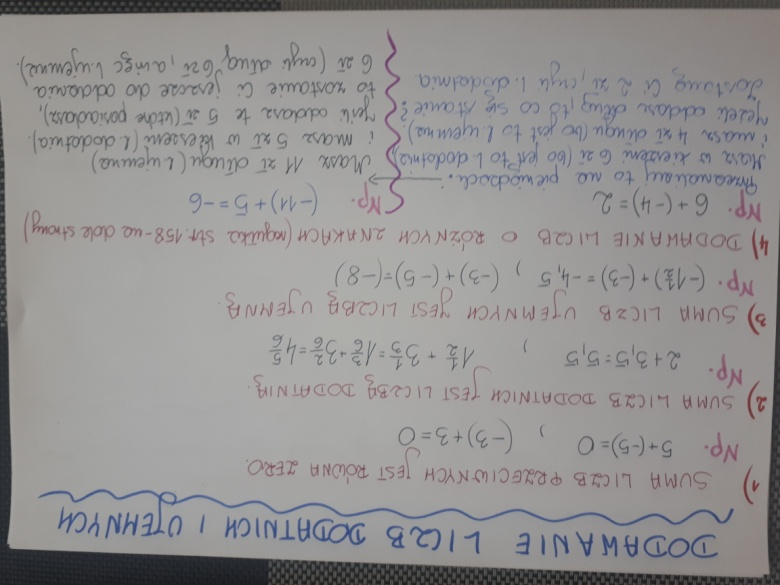 DODAWANIE LICZB DODATNICH I UJEMNYCH
1) SUMA LICZB PRZECIWNYCH JEST RÓWNA ZERO.
Np. 5+(-5)=0 , (-3)+3=0
2) SUMA LICZB DODATNICH JEST LICZBĄ DODATNIĄ.
Np. 2+3,5=5,5 , 1 1/2 + 3 1/3 = 1 3/6 + 3 2/6 = 4 5/6
3) SUMA LICZB UJEMNYCH JEST LICZBĄ UJEMNĄ.
Np. (-1 1/2)+(-3)=-4,5 , (-3)+(-5)=(-8)
4) DODAWANIE LICZB O RÓŻNYCH ZNAKACH (regułka str. 158-na dole strony)
Np. 6+(-4)=2
Przeanalizuj to na pieniądzach.
Masz w kieszeni 6 zł (bo jest to l. dodatnia)
i masz 4 zł długu (bo jest to l. ujemna)
Jeżeli oddasz dług, to co się stanie?
Zostaną Ci 2 zł, czyli l. dodatnia.
Np. (-11)+5=-6
Masz 11 zł długu (l. ujemna)
i masz 5 zł w kieszeni (l. dodatnia).
Jeśli oddasz te 5 zł (które posiadasz),
to zostanie Ci jeszcze do oddania
6 zł (czyli dług 6 zł, a więc l. ujemna).